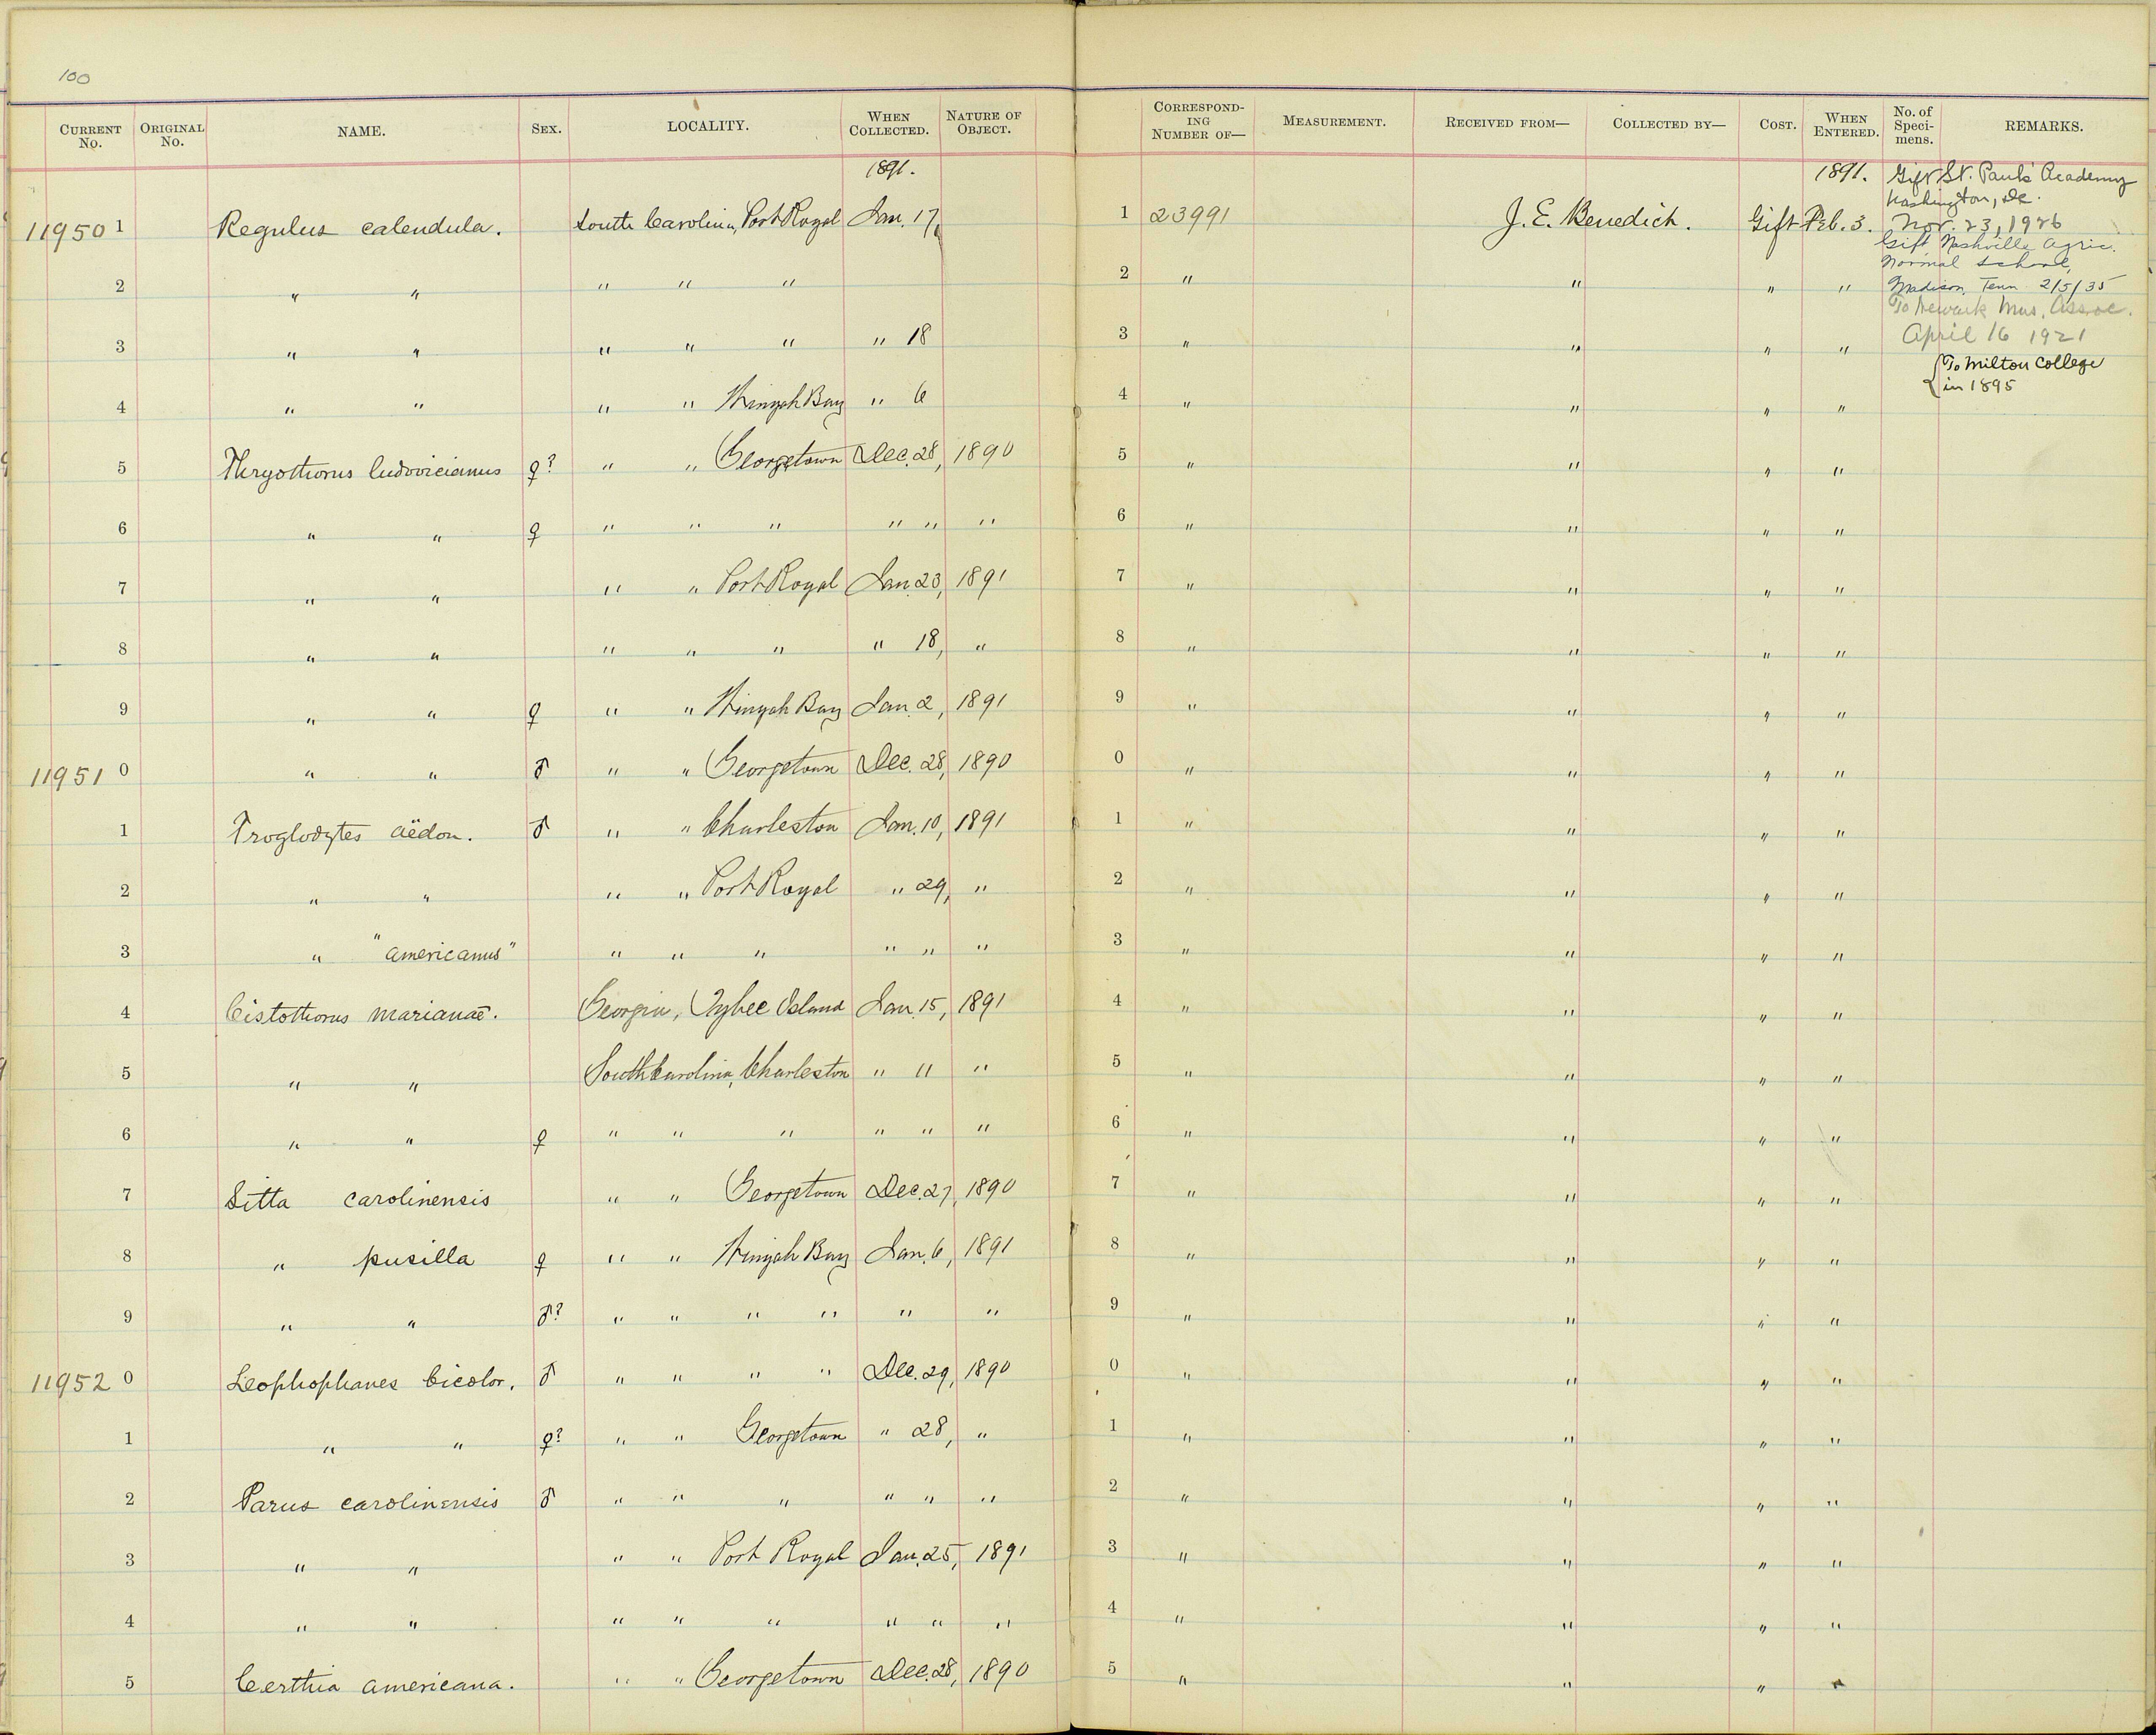 100
CURRENT No. ORIGINAL No. NAME. SEX. LOCALITY. WHEN COLLECTED. NATURE OF OBJECT. CORRESPONDING NUMBER OF— MEASUREMENT. RECEIVED FROM— COLLECTED BY— COST. WHEN ENTERED. No. of Specimens. REMARKS.
1891. 1891. Gift St. Paul's Academy
Washington, DC.
119501 Regulus calendula. South Carolina, Port Royal Jan. 17, 1 23991 J. E. Benedict. Gift Feb. 3. Nov. 23, 1926
Gift Nashville Agric.
Normal School,
2 " " " " " 2 " " " " Madison, Tenn 2/5/35
To Newark Mus. Assoc.
3 " " " " " " 18 3 " " " " April 16 1921
{To Milton College
in 1895
4 " " " " Winyah Bay " 6 4 " " " "
5 Thryothorus ludovicianus ♀? " " Georgetown Dec. 28, 1890 5 " " " "
6 " " ♀ " " " " " " 6 " " " "
7 " " " " Port Royal Jan. 23, 1891 7 " " " "
8 " " " " " " 18, " 8 " " " "
9 " " ♀ " " Winyah Bay Jan. 2, 1891 9 " " " "
119510 " " ♂ " " Georgetown Dec. 28, 1890 0 " " " "
1 Troglodytes aëdon. ♂ " " Charleston Jan. 10, 1891 1 " " " "
2 " " " " Port Royal " 29, " 2 " " " "
3 " "americanus" " " " " " " 3 " " " "
4 Cistothorus marianae. Georgia, Tybee Island Jan. 15, 1891 4 " " " "
5 " " South Carolina, Charleston " " " 5 " " " "
6 " " ♀ " " " " " " 6 " " " "
7 Sitta carolinensis " " Georgetown Dec. 27, 1890 7 " " " "
8 " pusilla ♀ " " Winyah Bay Jan. 6, 1891 8 " " " "
9 " " ♂? " " " " " " 9 " " " "
119520 Leophophanes bicolor. ♂ " " " " Dec. 29, 1890 0 " " " "
1 " " ♀? " " Georgetown " 28, " 1 " " " "
2 Parus carolinensis ♂ " " " " " " 2 " " " "
3 " " " " Port Royal Jan. 25, 1891 3 " " " "
4 " " " " " " " " 4 " " " "
5 Certhia americana. " " Georgetown Dec. 28, 1890 5 " " " "